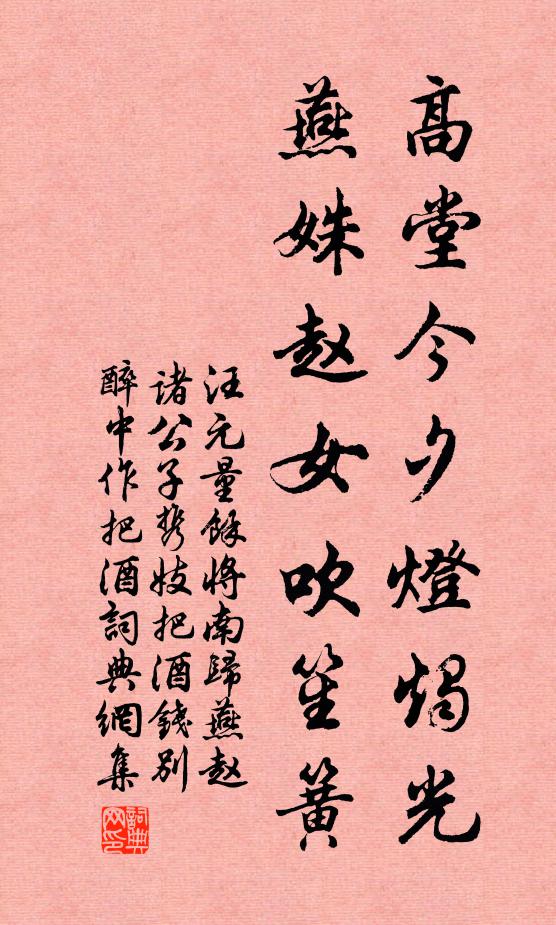 高堂今夕燈燭光
燕姝赵女吹笙簧
汪元量餘將南歸燕赵
諸公子携妓把酒錢別
醉中作把酒詞典網集
詞典
网印